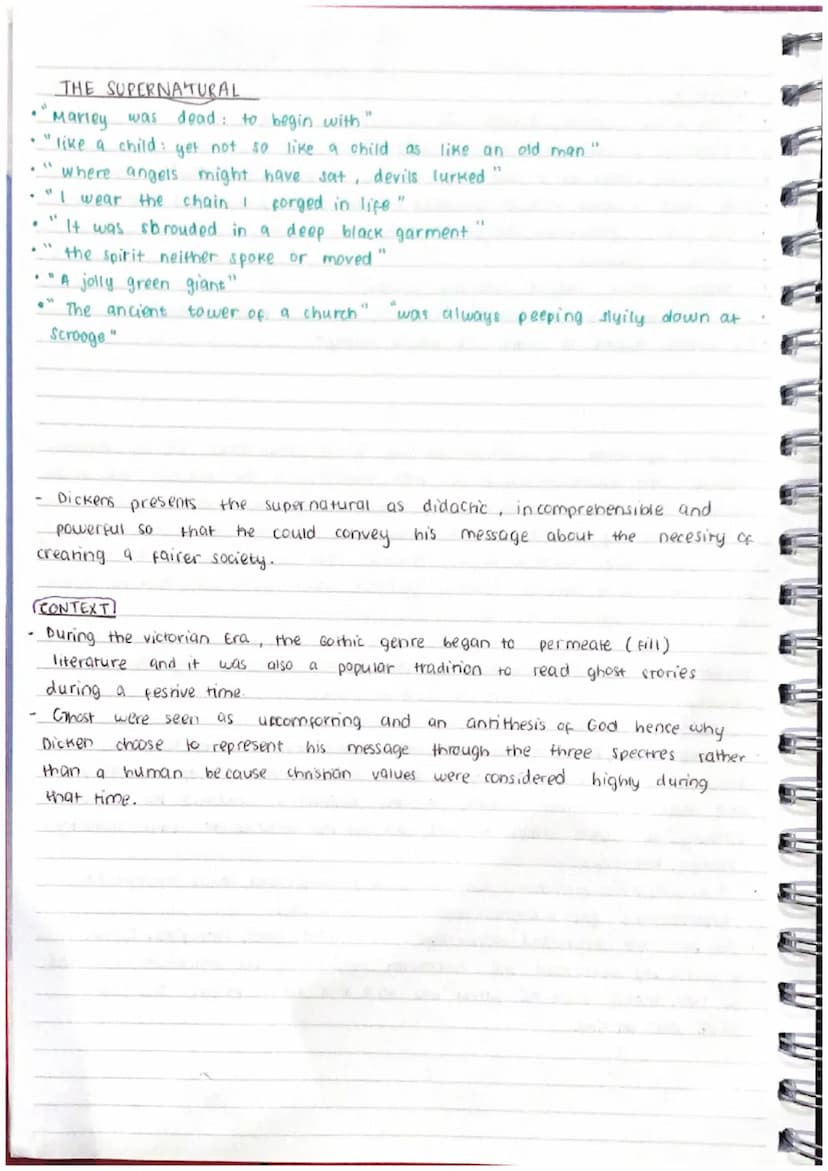 THE SUPERNATURAL
• "Marley was dead: to begin with"
• "like a child: yet not so like a child as like an old man"
• "where angels might have sat, devils lurked"
• "I wear the chain I forged in life"
• "It was shrouded in a deep black garment"
• "the spirit neither spoke or moved"
• "A jolly green giant"
• "The ancient tower of a church" "was always peeping slyily down at
Scrooge"
- Dickens presents the supernatural as didactic, incomprehensible and
powerful so that he could convey his message about the necesity of
creating a fairer society.
CONTEXT
- During the victorian Era, the Gothic genre began to permeate (fill)
literature and it was also a popular tradition to read ghost stories
during a festive time.
- Ghost were seen as upcomforring and an antithesis of God hence why
Dicken choose to represent his message through the three spectres rather
than a human because christian values were considered highly during
that time.